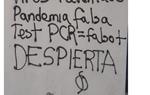 Pandemia falsa
Test PCR = fabot
DESPIERTA